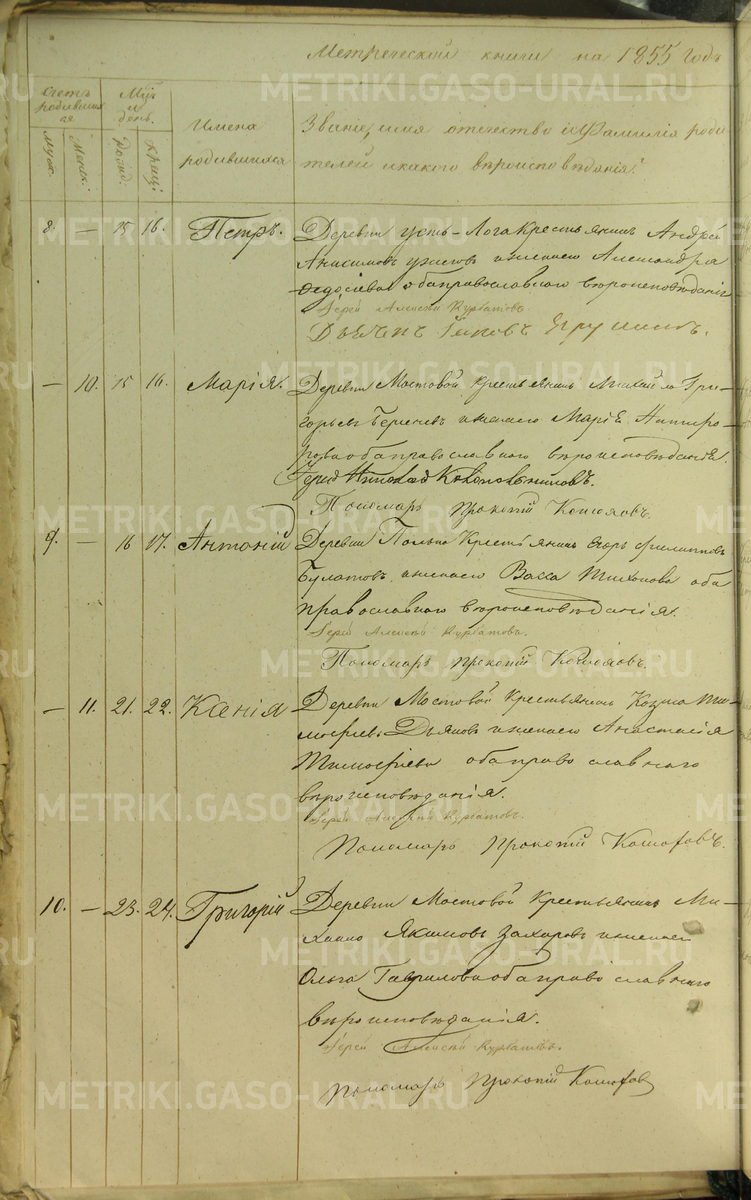 Метрической книги на 1855 годъ
Счетъ родившихся
Муж.
Женск:
Мцъ и день.
рожд.
крещ:
Имена родившихся
Званіе, имя отечество и Фамилія роди
телей и какого вѣроисповѣданія.
8. — 15 16. Петръ. Деревни усть-Лога Крестьянинъ Андрей
Анисимовъ и жена его Александра
Федосіева оба православнаго вѣроисповѣданія
Іерей Алексѣй Курбатовъ
Дьячекъ Іаковъ
— 10. 15 16. Марія. Деревни Мостовой крестьянинъ Михайло Гри-
горьевъ и жена его Марія
оба православнаго вѣроисповѣданія.
Іерей Николай
Пономарь Прокопій
9. — 16 17. Антоній Деревни Крестьянинъ Егоръ Филиповъ
Булатовъ и жена его Васса Тихонова оба
православнаго вѣроисповѣданія.
Іерей Алексѣй Курбатовъ.
Пономарь Прокопій
— 11. 21. 22. Ксенія Деревни Мостовой Крестьянинъ Козма Ти-
мофѣевъ и жена его Анастасія
Тимофѣева оба православнаго
вѣроисповѣданія.
Іерей Алексѣй Курбатовъ.
Пономарь Прокопій
10. — 23. 24. Григорій Деревни Мостовой Крестьянинъ Ми-
хаило Якимовъ Захаровъ и жена его
Ольга Гаврилова оба православнаго
вѣроисповѣданія.
Іерей Алексѣй Курбатовъ.
Пономарь Прокопій
METRIKI.GASO-URAL.RU